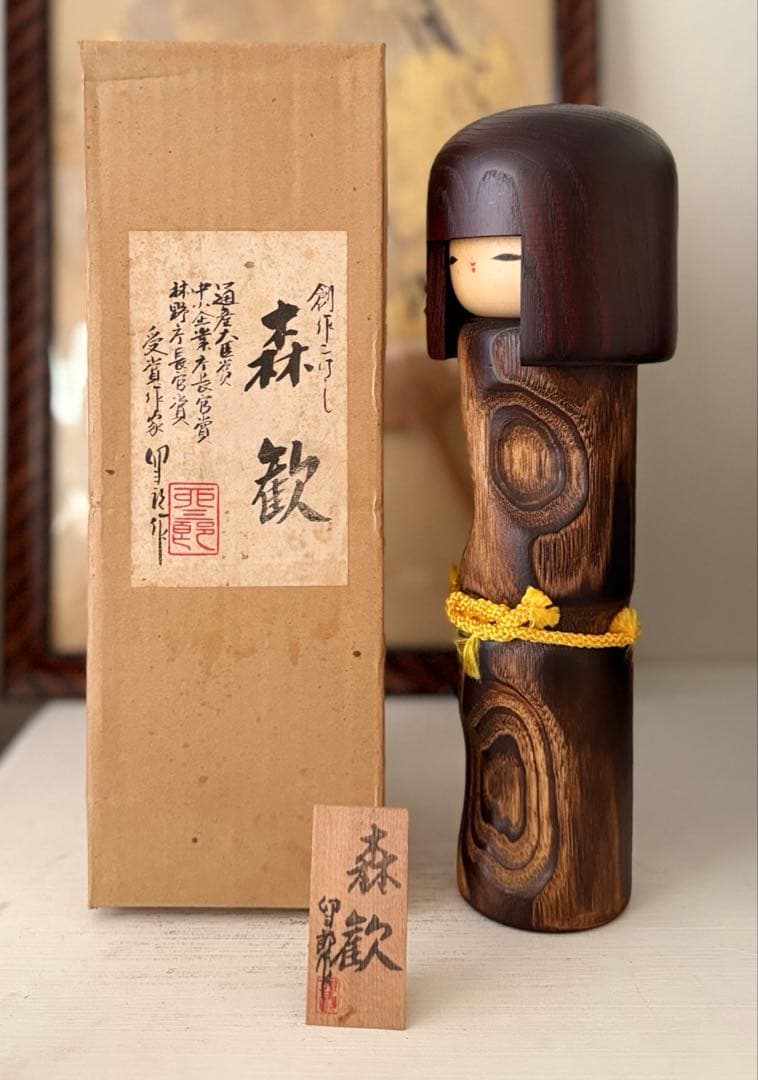 創作こけし
森歓
通産大臣賞
中小企業庁長官賞
林野庁長官賞
受賞作家
作
森歓